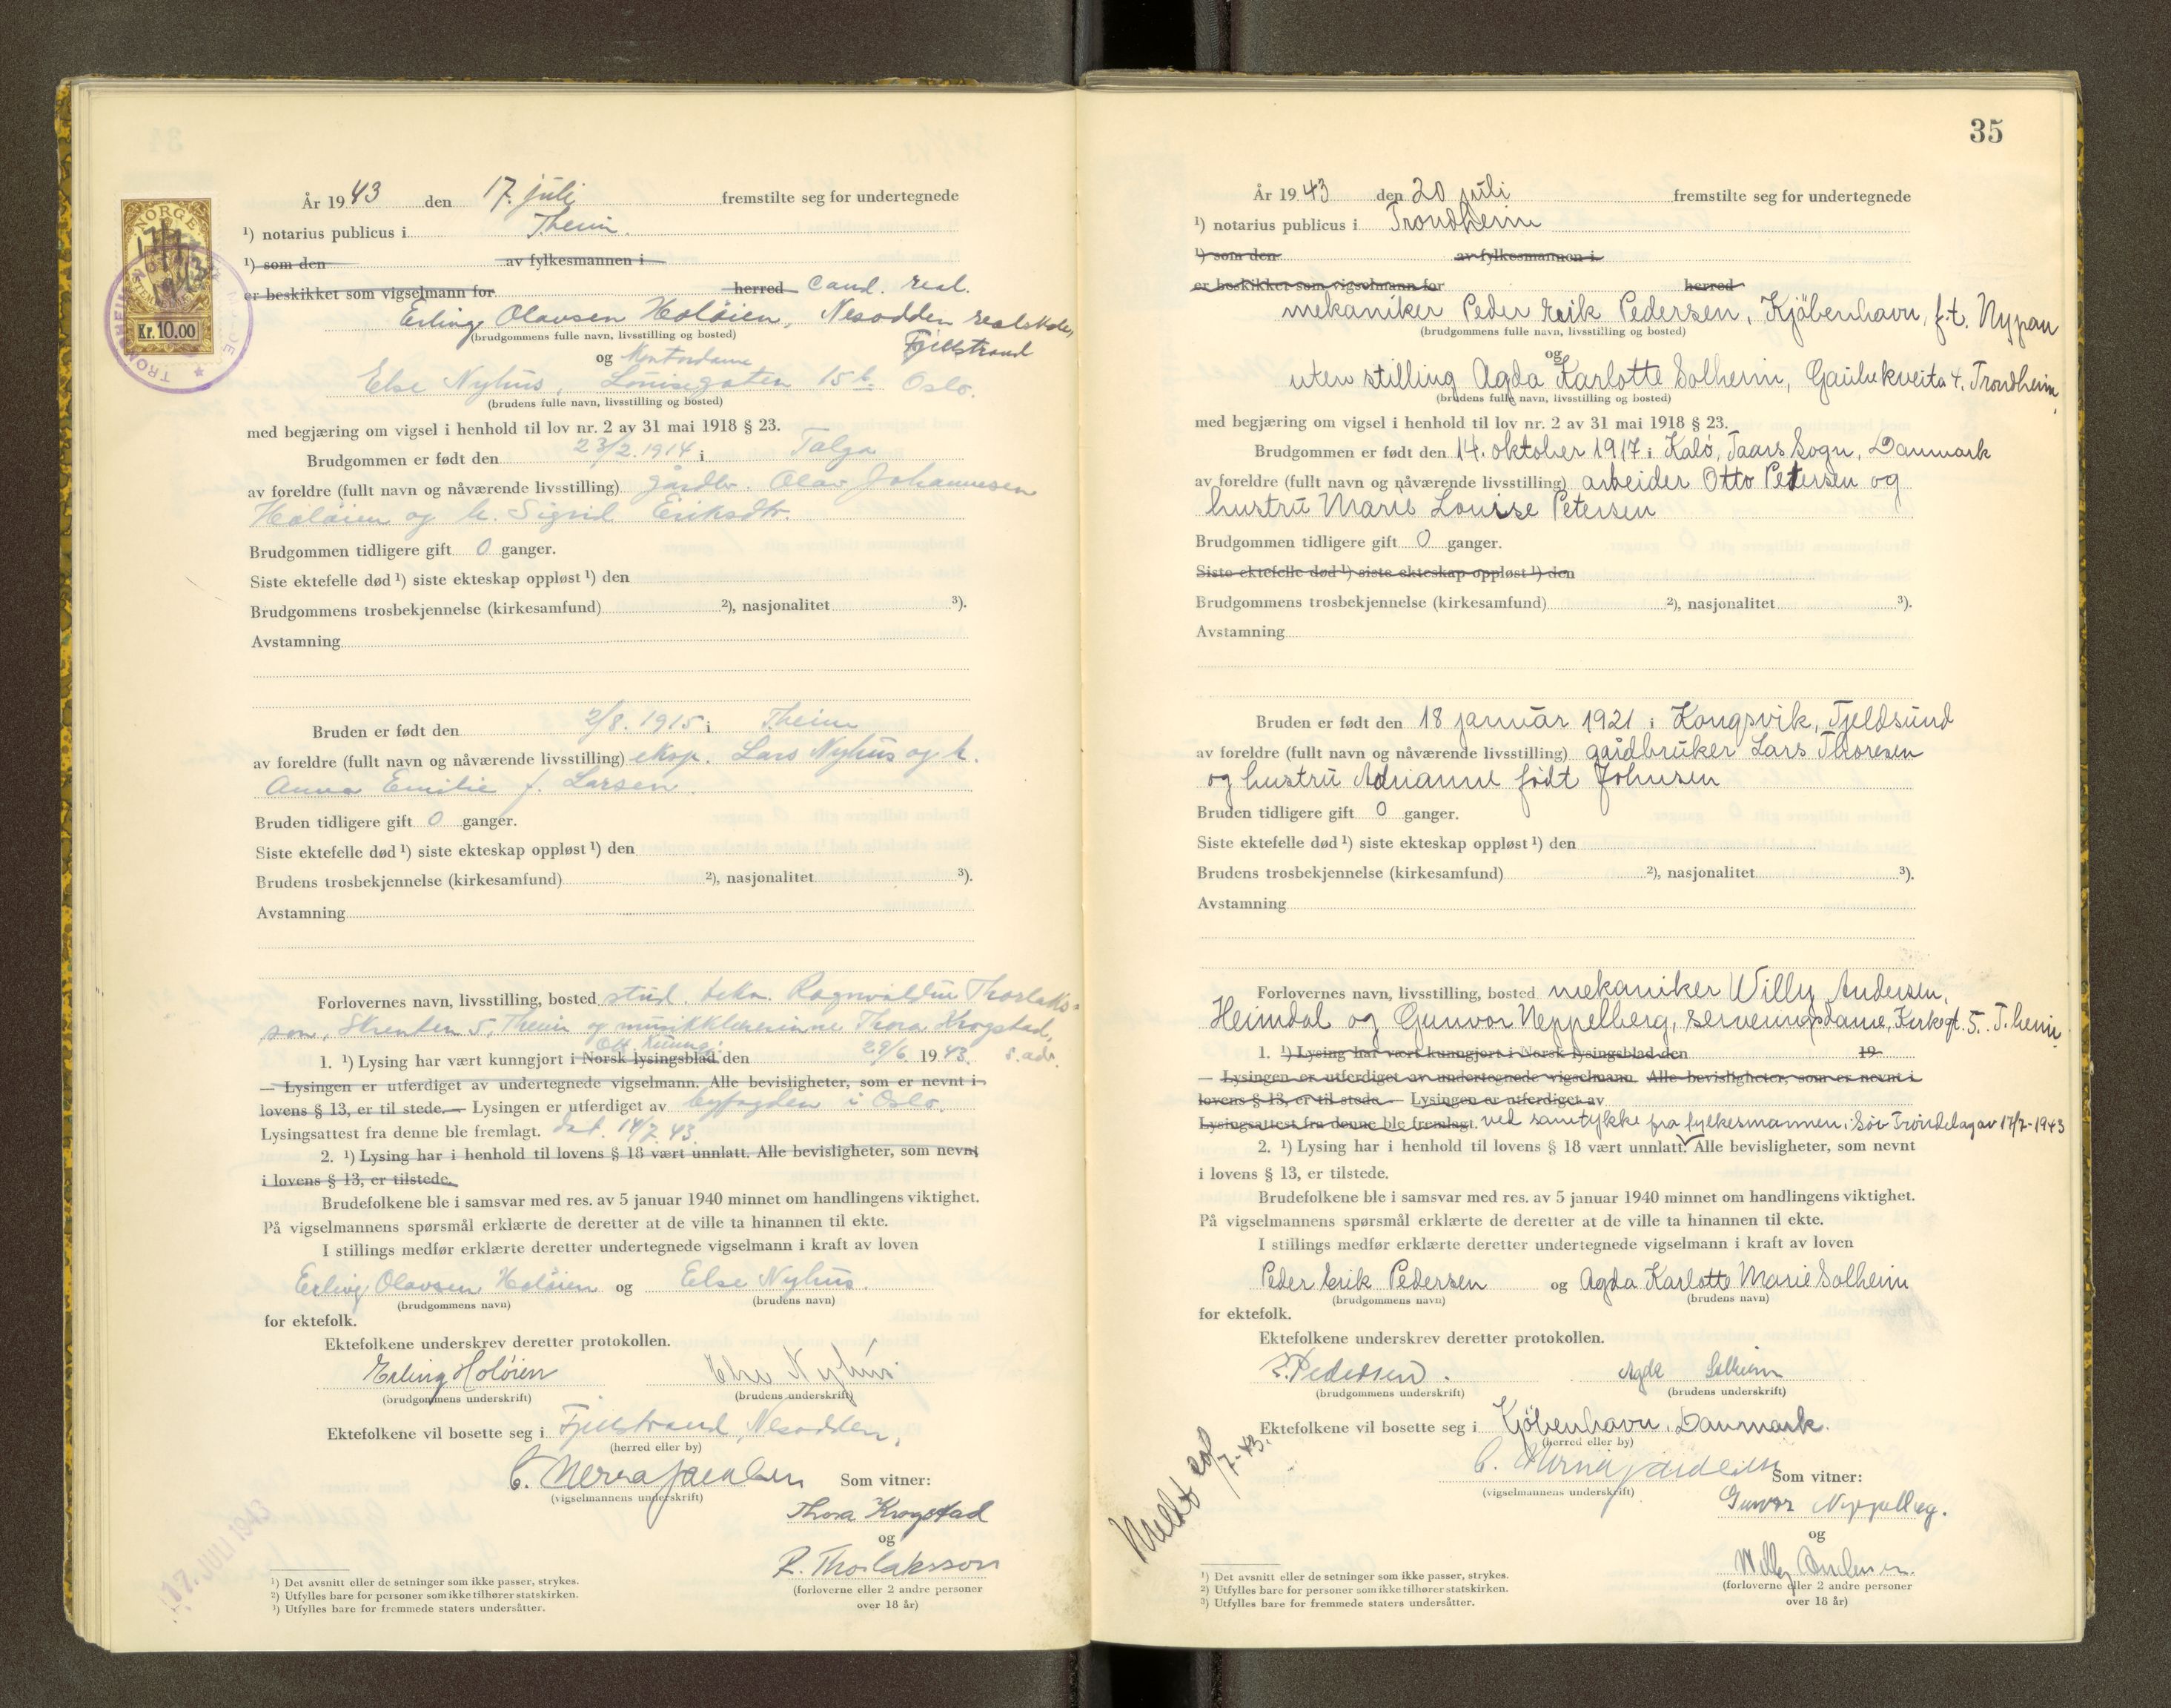 NORGE
17/7
1943
Kr. 10.00
År 1943 den 17. juli fremstilte seg for undertegnede
¹) notarius publicus i Theim.
¹) som den av fylkesmannen i
er beskikket som vigselmann for herred cand. real.
Erling Olavsen Holöien, Nesodden realskole,
(brudgommens fulle navn, livsstilling og bosted) Fjellstrand
og Kontordame
Else Nyhus, Louisegaten 15 b. Oslo.
(brudens fulle navn, livsstilling og bosted)
med begjæring om vigsel i henhold til lov nr. 2 av 31 mai 1918 § 23.
Brudgommen er født den 23/2. 1914 i Tolga
av foreldre (fullt navn og nåværende livsstilling) gårdbr. Olav Johannesen
Holöien og h. Sigrid Eriksdtr.
Brudgommen tidligere gift 0 ganger.
Siste ektefelle død ¹) siste ekteskap oppløst ¹) den
Brudgommens trosbekjennelse (kirkesamfund) ²), nasjonalitet ³).
Avstamning
Bruden er født den 2/8. 1915 i Theim
av foreldre (fullt navn og nåværende livsstilling) eksp. Lars Nyhus og h.
Anna Emilie f. Larsen.
Bruden tidligere gift 0 ganger.
Siste ektefelle død ¹) siste ekteskap oppløst ¹) den
Brudens trosbekjennelse (kirkesamfund) ²), nasjonalitet ³).
Avstamning
Forlovernes navn, livsstilling, bosted stud. tekn. Ragnvaldur Thorlaks-
son, Skrenten 5, Theim og musikklærerinne Thora Krogstad,
Off. Kunng.
1. ¹) Lysing har vært kunngjort i Norsk lysingsblad den 29/6 1943. s. adr.
— Lysingen er utferdiget av undertegnede vigselmann. Alle bevisligheter, som er nevnt i
lovens § 13, er til stede. — Lysingen er utferdiget av byfogden i Oslo.
Lysingsattest fra denne ble fremlagt. dat. 14/7. 43.
2. ¹) Lysing har i henhold til lovens § 18 vært unnlatt. Alle bevisligheter, som nevnt
i lovens § 13, er tilstede.
Brudefolkene ble i samsvar med res. av 5 januar 1940 minnet om handlingens viktighet.
På vigselmannens spørsmål erklærte de deretter at de ville ta hinannen til ekte.
I stillings medfør erklærte deretter undertegnede vigselmann i kraft av loven
Erling Olavsen Holöien og Else Nyhus.
(brudgommens navn) (brudens navn)
for ektefolk.
Ektefolkene underskrev deretter protokollen.
Erling Holöien Else Nyhus
(brudgommens underskrift) (brudens underskrift)
Ektefolkene vil bosette seg i Fjellstrand, Nesodden.
(herred eller by)
Som vitner:
(vigselmannens underskrift)
Thora Krogstad
og
R. Thorlaksson
(forloverne eller 2 andre personer
over 18 år)
17. JULI 1943
¹) Det avsnitt eller de setninger som ikke passer, strykes.
²) Utfylles bare for personer som ikke tilhører statskirken.
³) Utfylles bare for fremmede staters undersåtter.
35
År 1943 den 20 juli fremstilte seg for undertegnede
¹) notarius publicus i Trondheim
¹) som den av fylkesmannen i
er beskikket som vigselmann for herred
mekaniker Peder Erik Pedersen, Kjöbenhavn, f.t. Nypan
(brudgommens fulle navn, livsstilling og bosted)
og
uten stilling Agda Karlotte Solheim, Gaubekveita 4, Trondheim,
(brudens fulle navn, livsstilling og bosted)
med begjæring om vigsel i henhold til lov nr. 2 av 31 mai 1918 § 23.
Brudgommen er født den 14. oktober 1917 i Kalö, Taars Sogn, Danmark
av foreldre (fullt navn og nåværende livsstilling) arbeider Otto Petersen og
hustru Marie Louise Petersen
Brudgommen tidligere gift 0 ganger.
Siste ektefelle død ¹) siste ekteskap oppløst ¹) den
Brudgommens trosbekjennelse (kirkesamfund) ²), nasjonalitet ³).
Avstamning
Bruden er født den 18 januar 1921 i Kongsvik, Tjeldsund
av foreldre (fullt navn og nåværende livsstilling) gaardbruker Lars Thoresen
og hustru Adrianne födt Johnsen
Bruden tidligere gift 0 ganger.
Siste ektefelle død ¹) siste ekteskap oppløst ¹) den
Brudens trosbekjennelse (kirkesamfund) ²), nasjonalitet ³).
Avstamning
Forlovernes navn, livsstilling, bosted mekaniker Willy Andersen,
Heimdal og Gunvor Neppelberg, serveringsdame, Kirkegt. 5. T.heim.
1. ¹) Lysing har vært kunngjort i Norsk lysingsblad den 19
— Lysingen er utferdiget av undertegnede vigselmann. Alle bevisligheter, som er nevnt i
lovens § 13, er til stede. — Lysingen er utferdiget av
Lysingsattest fra denne ble fremlagt. ved samtykke fra fylkesmannen i Sör Tröndelag av 17/7-1943
2. ¹) Lysing har i henhold til lovens § 18 vært unnlatt. Alle bevisligheter, som nevnt
i lovens § 13, er tilstede.
Brudefolkene ble i samsvar med res. av 5 januar 1940 minnet om handlingens viktighet.
På vigselmannens spørsmål erklærte de deretter at de ville ta hinannen til ekte.
I stillings medfør erklærte deretter undertegnede vigselmann i kraft av loven
Peder Erik Pedersen og Agda Karlotte Marie Solheim
(brudgommens navn) (brudens navn)
for ektefolk.
Ektefolkene underskrev deretter protokollen.
Pedersen. Agda Solheim
(brudgommens underskrift) (brudens underskrift)
Ektefolkene vil bosette seg i Kjöbenhavn, Danmark.
(herred eller by)
Som vitner:
(vigselmannens underskrift)
Gunvor Neppelberg.
og
Willy Andersen.
(forloverne eller 2 andre personer
over 18 år)
Meldt
7-43.
¹) Det avsnitt eller de setninger som ikke passer, strykes.
²) Utfylles bare for personer som ikke tilhører statskirken.
³) Utfylles bare for fremmede staters undersåtter.